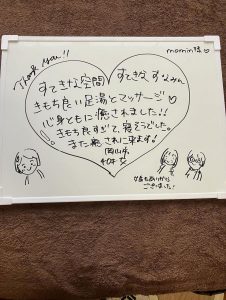 Thank you!!
momin様♡
すてきな空間 すてきな
きもち良い足湯とマッサージ♡
心身ともに癒されました!!
きもち良すぎて、寝そうでした。
また癒されに来ます!
岡山県
ありがとう
ございました!